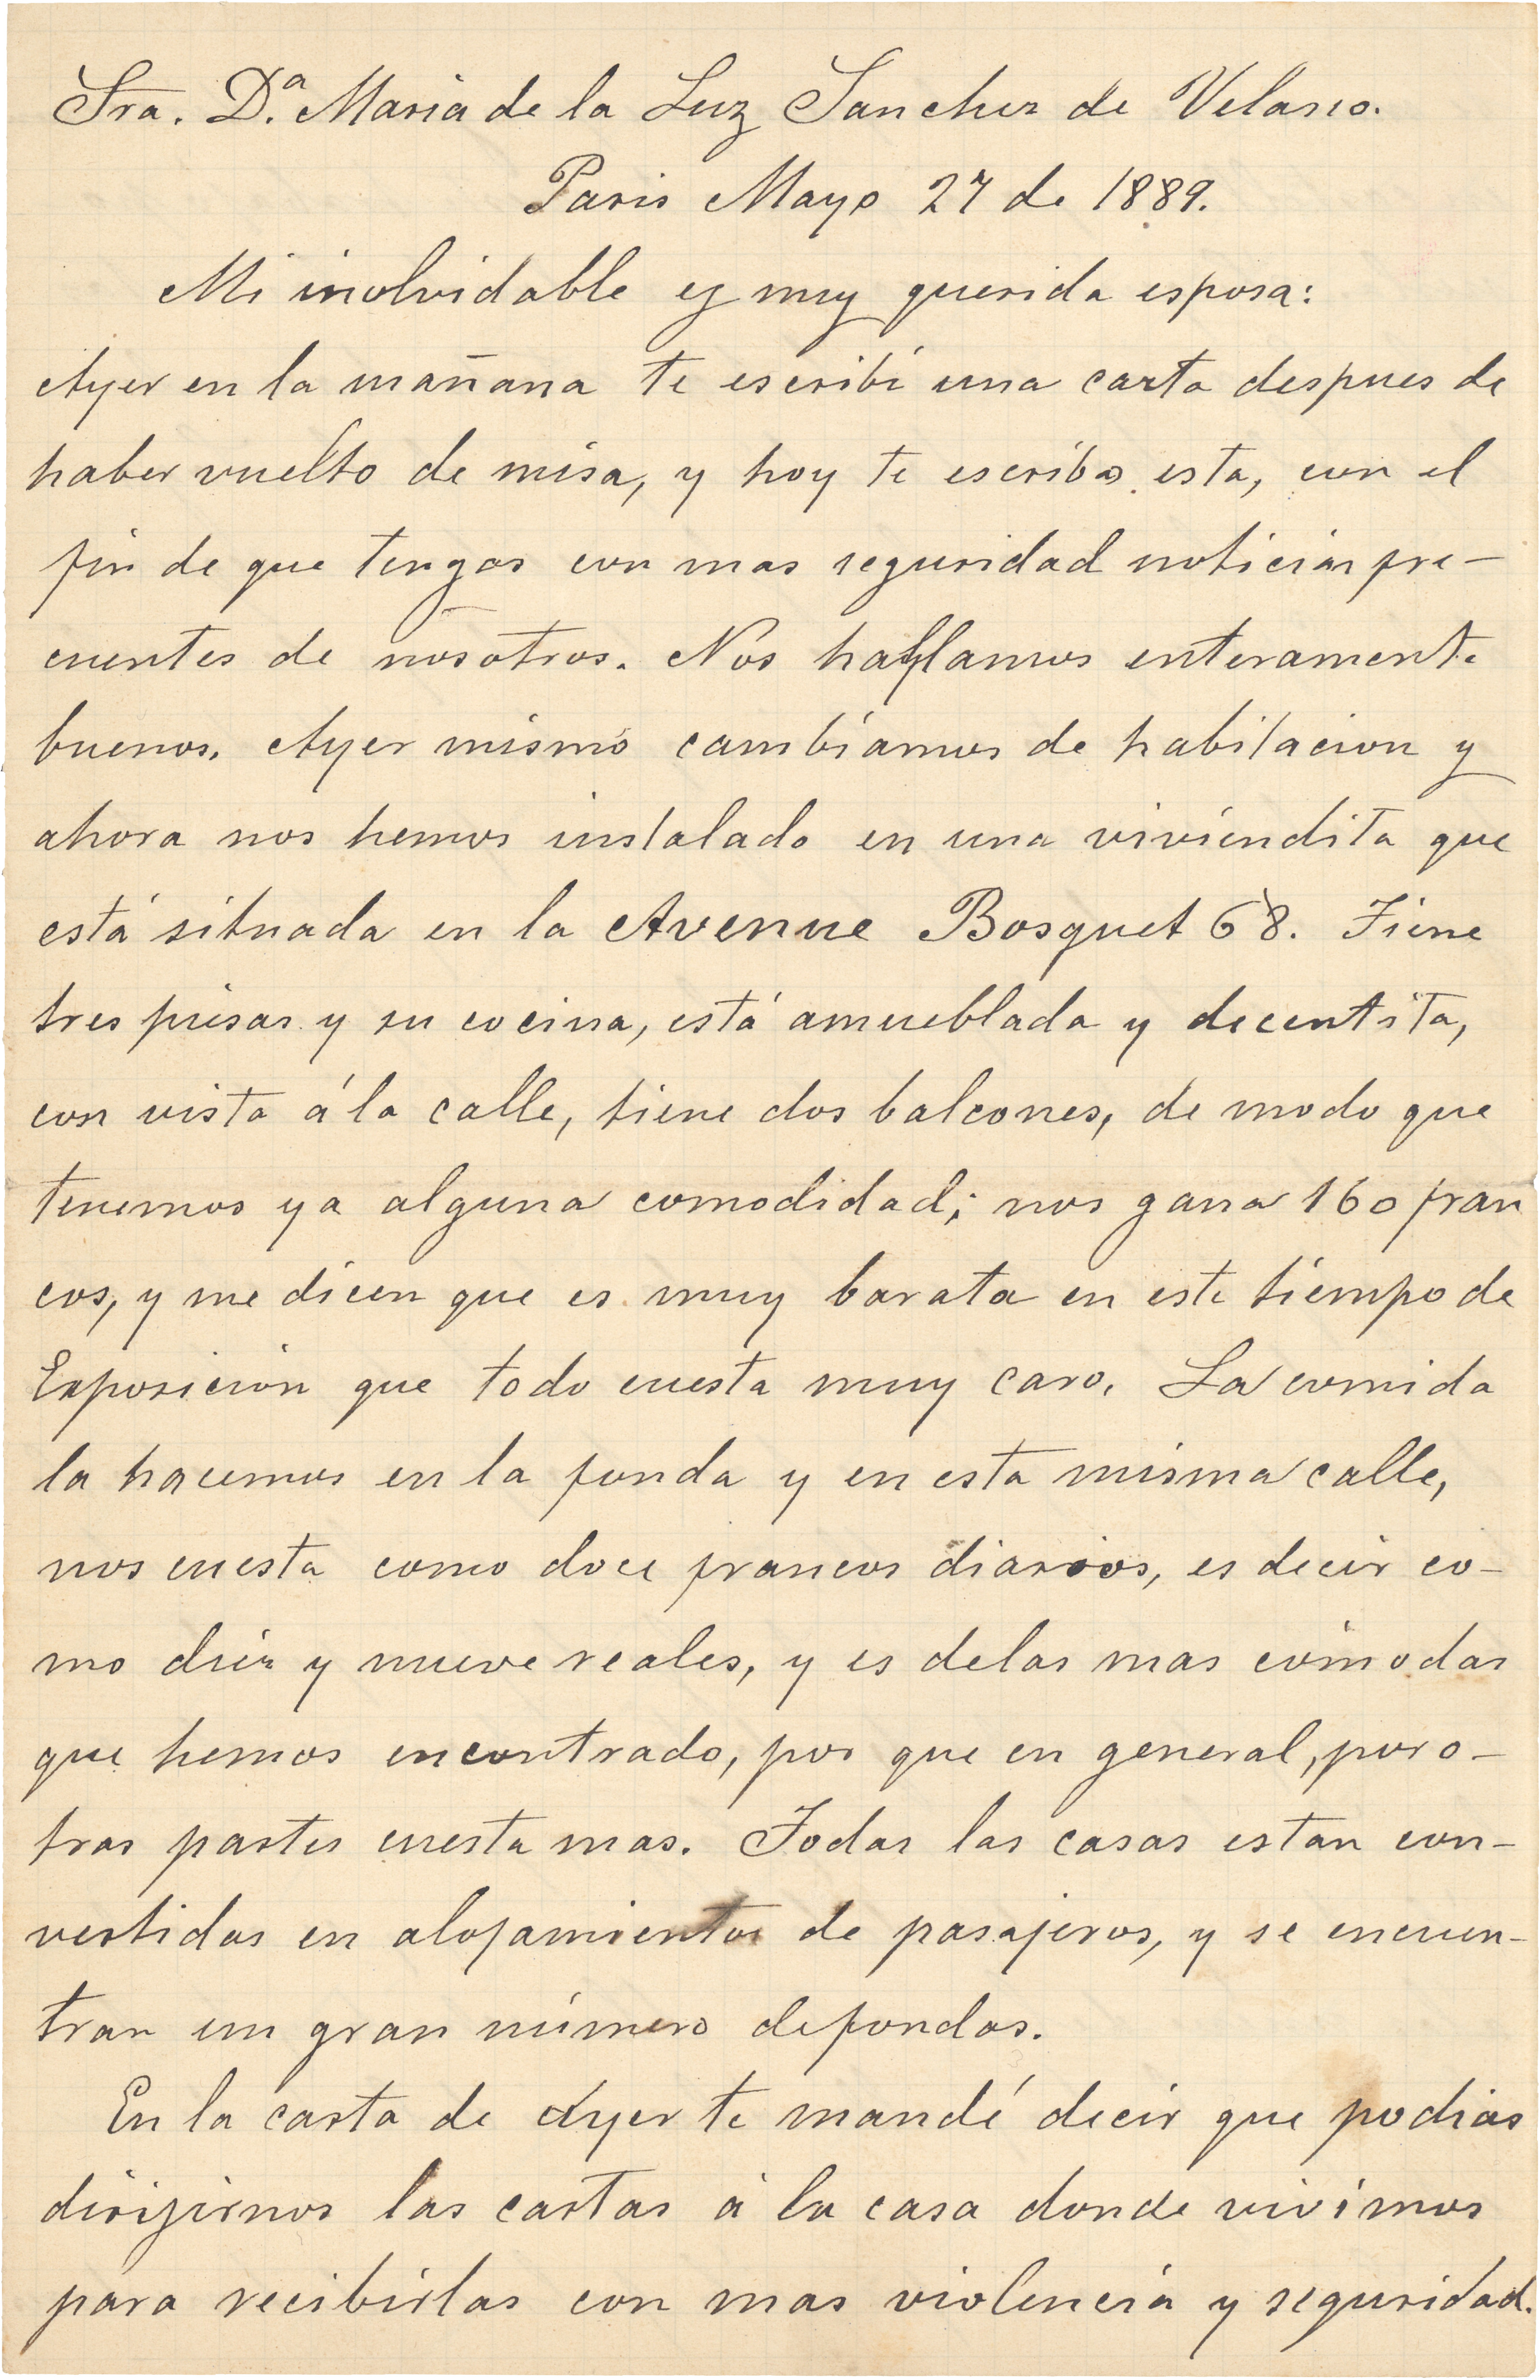 Sra. D.ª Maria de la Luz Sanchez de Velasco.
Paris Mayo 27 de 1889.
Mi inolvidable y muy querida esposa:
Ayer en la mañana te escribí una carta despues de
haber vuelto de misa, y hoy te escribo esta, con el
fin de que tengas con mas seguridad noticias fre-
cuentes de nosotros. Nos hallamos enteramente
buenos. Ayer mismo cambiamos de habitacion y
ahora nos hemos instalado en una viviendita que
está situada en la Avenue Bosquet 68. Tiene
tres piesas y su cocina, está amueblada y decentita,
con vista á la calle, tiene dos balcones, de modo que
tenemos ya alguna comodidad; nos gana 160 fran
cos, y me dicen que es muy barata en este tiempo de
Exposicion que todo cuesta muy caro. La comida
la hacemos en la fonda y en esta misma calle,
nos cuesta como doce francos diarios, es decir co-
mo diez y nueve reales, y es de las mas cómodas
que hemos encontrado, por que en general, por o-
tras partes cuesta mas. Todas las casas estan con-
vertidas en alojamientos de pasajeros, y se encuen-
tran un gran número de fondas.
En la carta de Ayer te mandé decir que podias
dirijirnos las cartas á la casa donde vivimos
para recibirlas con mas violencia y seguridad.